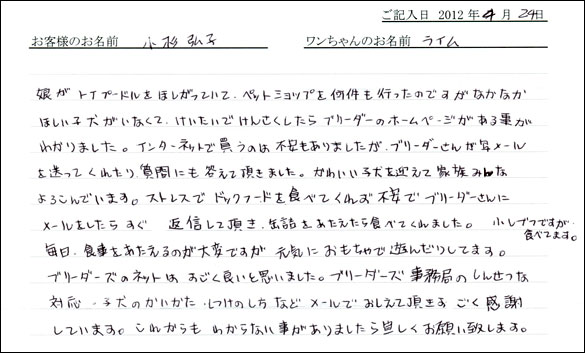 ご記入日 2012年4月24日
お客様のお名前 小杉弘子 ワンちゃんのお名前 ライム
娘がトイプードルをほしがっていて、ペットショップを何件も行ったのですがなかなか
ほしい子犬がいなくて、けいたいでけんさくしたらブリーダーのホームページがある事が
わかりました。インターネットで買うのは不安もありましたが、ブリーダーさんが写メール
を送ってくれたり、質問にも答えて頂きました。かわいい子犬を迎えて家族みんな
よろこんでいます。ストレスでドックフードを食べてくれず不安でブリーダーさんに
メールをしたらすぐ 返信して頂き、缶詰をあたえたら食べてくれました。 小しブツですが
食べてます。
毎日、食事をあたえるのが大変ですが 元気におもちゃで遊んだりしてます。
ブリーダーズのネットは すごく良いと思いました。ブリーダーズ事務局のしんせつな
対応、子犬のかいかた、しつけのしち など メールで おしえて頂き すごく感謝
しています。これからも わからない事がありましたら宜しくお願い致します。